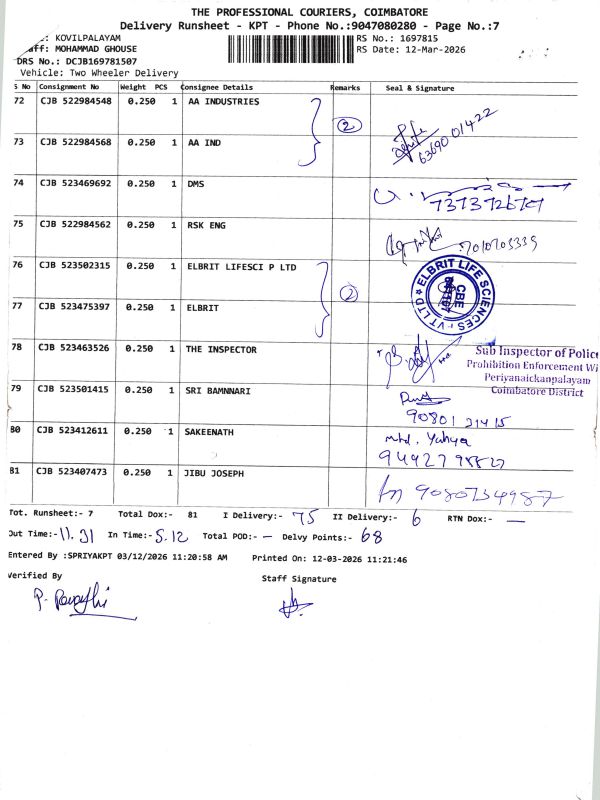 THE PROFESSIONAL COURIERS, COIMBATORE
Delivery Runsheet - KPT - Phone No.:9047080280 - Page No.:7
: KOVILPALAYAM
aff: MOHAMMAD GHOUSE
DRS No.: DCJB169781507
Vehicle: Two Wheeler Delivery
RS No.: 1697815
RS Date: 12-Mar-2026
S No Consignment No Weight PCS Consignee Details Remarks Seal & Signature
72 CJB 522984548 0.250 1 AA INDUSTRIES
2
63690 01422
73 CJB 522984568 0.250 1 AA IND
74 CJB 523469692 0.250 1 DMS
75 CJB 522984562 0.250 1 RSK ENG
7010703339
76 CJB 523502315 0.250 1 ELBRIT LIFESCI P LTD
2
ELBRIT LIFE SCIENCES PVT LTD
CBE
77 CJB 523475397 0.250 1 ELBRIT
78 CJB 523463526 0.250 1 THE INSPECTOR
Sub Inspector of Police
Prohibition Enforcement Wi
Periyanaickanpalayam
Coimbatore District
79 CJB 523501415 0.250 1 SRI BAMNNARI
90801 21415
80 CJB 523412611 0.250 1 SAKEENATH
Mhd. Yahya
81 CJB 523407473 0.250 1 JIBU JOSEPH
9080734987
Tot. Runsheet:- 7 Total Dox:- 81 I Delivery:- 75 II Delivery:- 6 RTN Dox:- —
Out Time:- 11.31 In Time:- 5.12 Total POD:- — Delvy Points:- 68
Entered By :SPRIYAKPT 03/12/2026 11:20:58 AM Printed On: 12-03-2026 11:21:46
Verified By Staff Signature